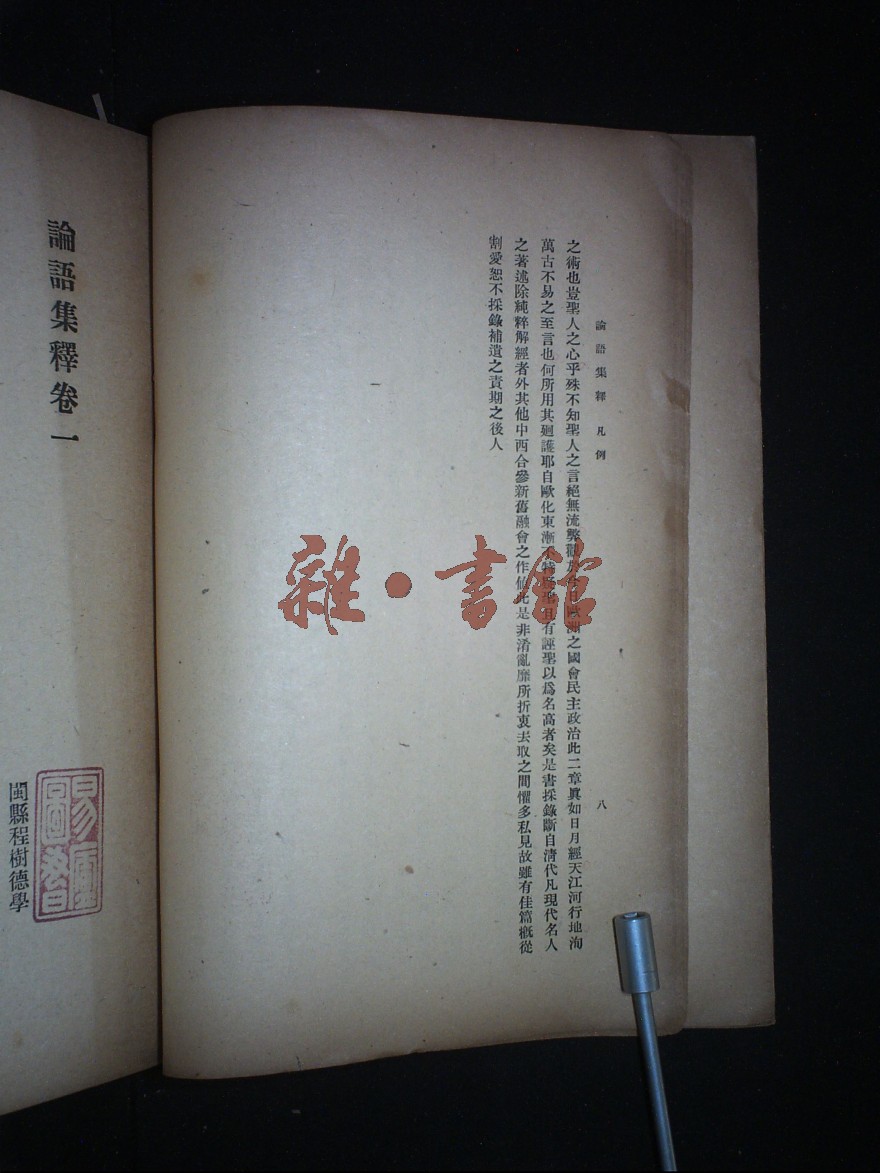 論語集釋 凡例 八
之術也豈聖人之心乎殊不知聖人之言絕無流弊觀於今日歐洲之國會民主政治此二章眞如日月經天江河行地洵
萬古不易之至言也何所用其廻護耶自歐化東漸不特疑聖且有誣聖以爲名高者矣是書採錄斷自清代凡現代名人
之著述除純粹解經者外其他中西合參新舊融會之作彼此是非淆亂靡所折衷去取之間懼多私見故雖有佳篇槪從
割愛恕不採錄補遺之責期之後人
雜·書館
論語集釋卷一
閩縣程樹德學